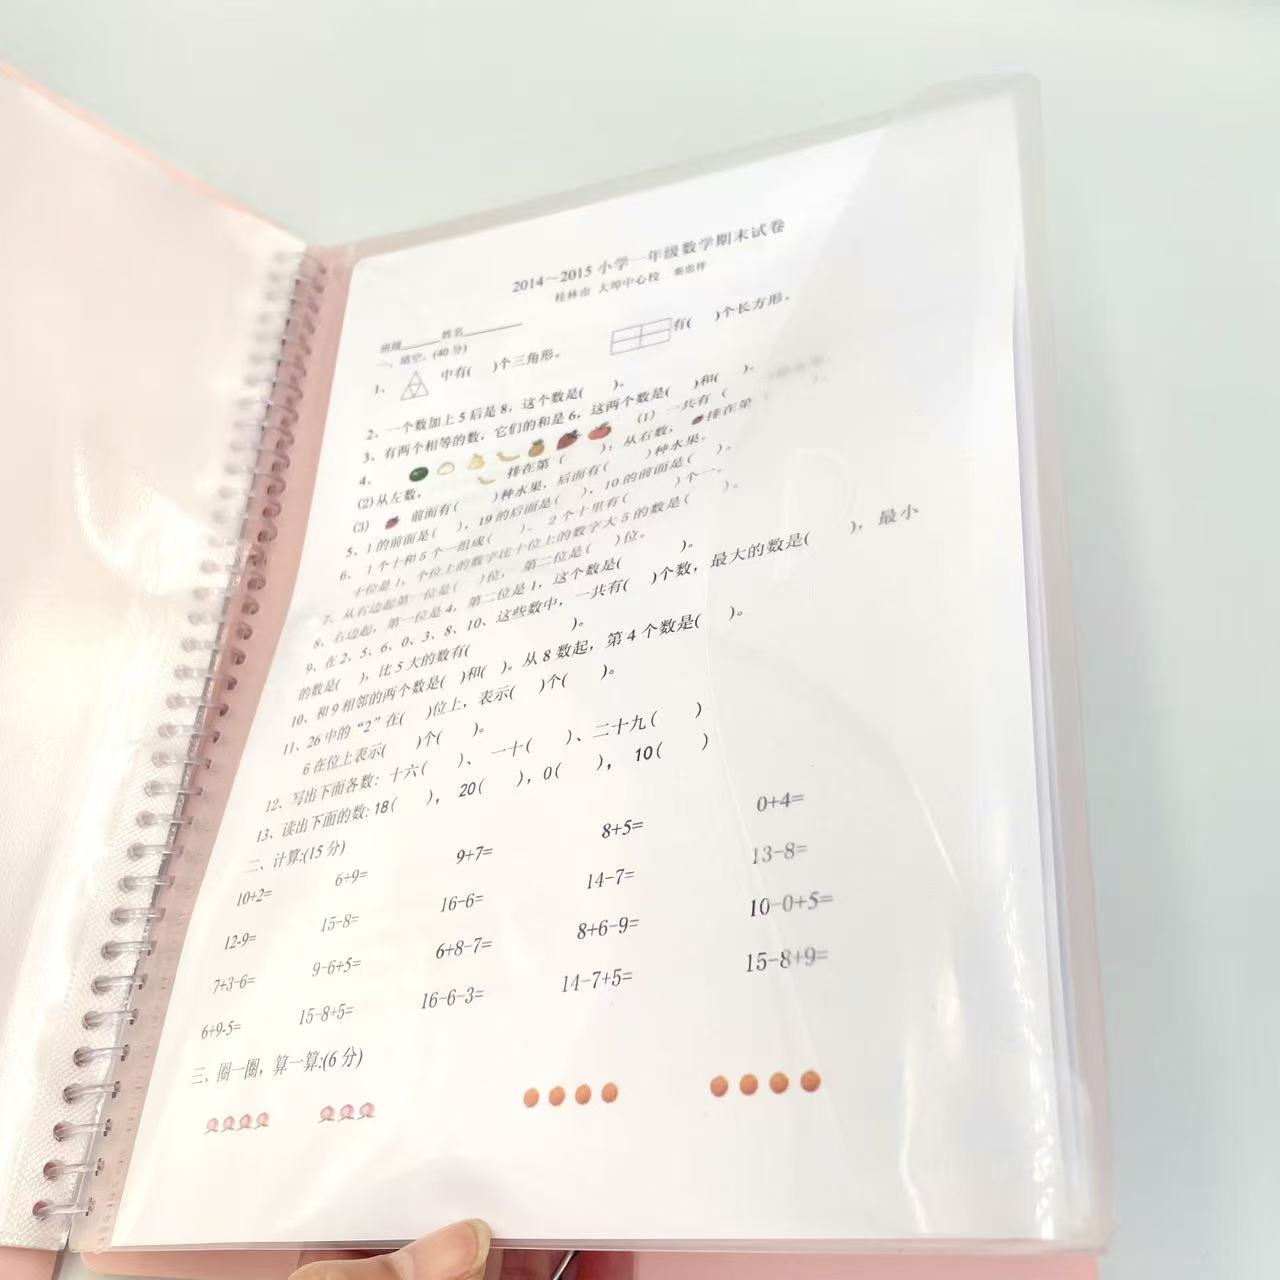 2014～2015 小学一年级数学期末试卷
桂林市 大埠中心校 秦忠祥
班级______姓名________
一、填空。(40分)
1、 中有( )个三角形。 有( )个长方形。
2、一个数加上5后是8，这个数是( )。
3、有两个相等的数，它们的和是6，这两个数是( )和( )。
4、 (1) 一共有 (
(2)从左数， 排在第 ( )；从右数， 排在第
(3) 前面有( )种水果，后面有( )种水果。
5、1的前面是( )，19的后面是( )，10的前面是( )。
6、 1个十和5个一组成( )。 2个十里有( )个一。
十位是1，个位上的数字比十位上的数字大5的数是( )。
7、从右边起第一位是( )位， 第二位是( )位。
8、右边起，第一位是4，第二位是1，这个数是( )。
9、在2、5、6、0、3、8、10、这些数中，一共有( )个数，最大的数是( )， 最小
的数是( )，比5大的数有( )。
10、和9相邻的两个数是( )和( )。从8数起，第4个数是( )。
11、26中的“2”在( )位上，表示( )个( )。
6在位上表示( )个( )。
12、写出下面各数：十六( )、 一十( )、二十九( )
13、读出下面的数: 18( )， 20( )，0( )， 10( )
二、计算:(15分)
10+2= 6+9= 9+7= 8+5= 0+4=
12-9= 15-8= 16-6= 14-7= 13-8=
7+3-6= 9-6+5= 6+8-7= 8+6-9= 10-0+5=
6+9-5= 15-8+5= 16-6-3= 14-7+5= 15-8+9=
三、圈一圈，算一算:(6分)